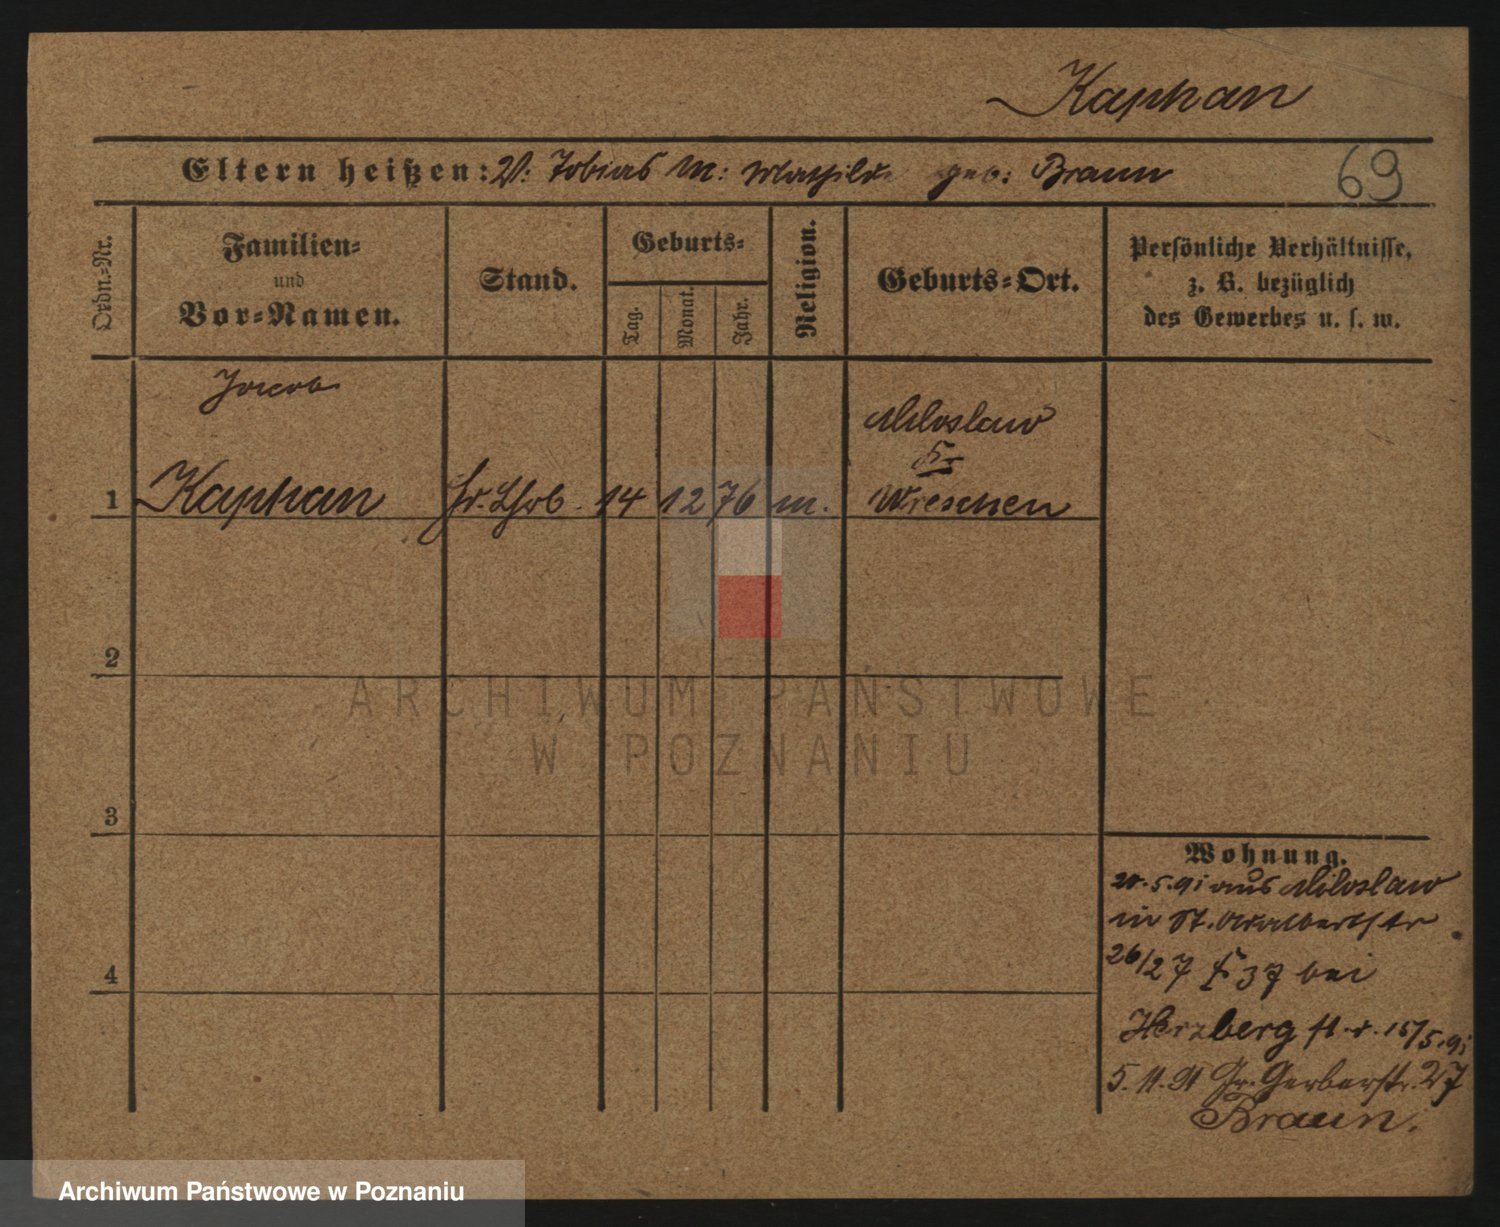 Kaphan
Eltern heißen: V: Tobias M: Mathilde geb: Braun
69
Ordn.-Nr.
Familien-
und
Vor-Namen.
Stand.
Geburts-
Tag.
Monat.
Jahr.
Religion.
Geburts-Ort.
Persönliche Verhältnisse,
z. B. bezüglich
des Gewerbes u. s. w.
Jacob
1 Kaphan 14 12 76 m.
Miloslaw
Kr
Wreschen
2
3
4
Wohnung.
20.5.91 aus Miloslaw
in St. Adalbertstr
26/27 37 bei
Herzberg 15/5.91
5.11.91 Gr. Gerberstr. 27
Braun.
ARCHIWUM PAŃSTWOWE
W POZNANIU
Archiwum Państwowe w Poznaniu